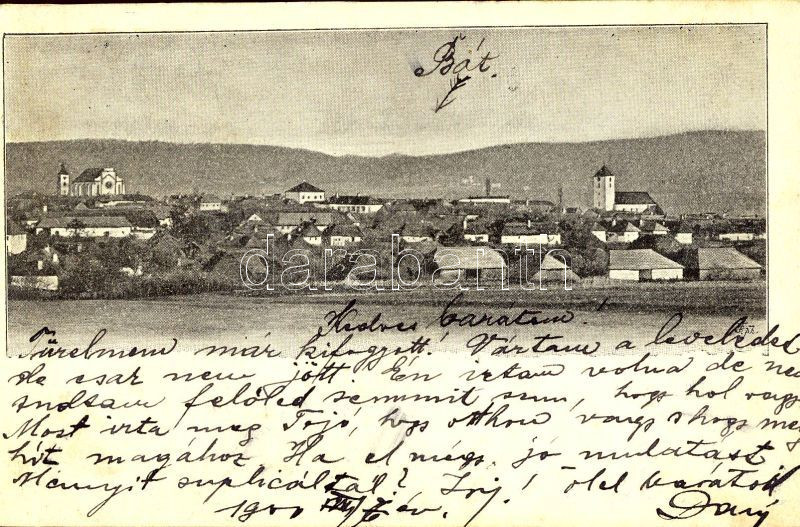 Bát.
darabanth
Kedves barátom!
Türelmem már kifogyott! Vártam a leveledet
de csak nem jött. Én irtam volna de nem
tudtam felőled semmit sem, hogy hol vagy.
Most irta meg Jojó, hogy otthon vagy s hogy meg
hit magához. Ha el mégy, jó mulatást
Mennyit suplicáltál? Irj! ölel barátod
1900 év. Dany